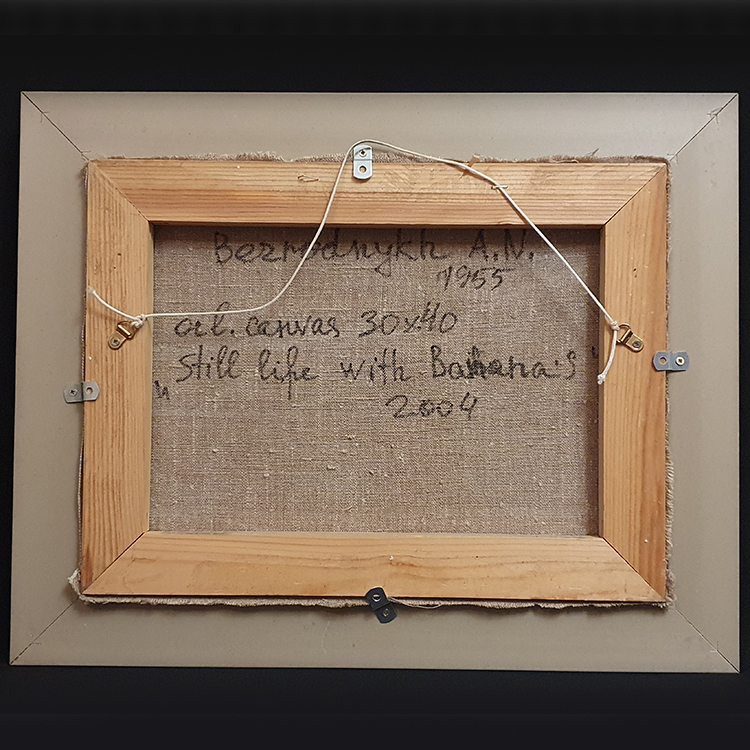 Bezrodnykh A.N.
1955
oil. canvas 30x40
"Still life with Banana's"
2004